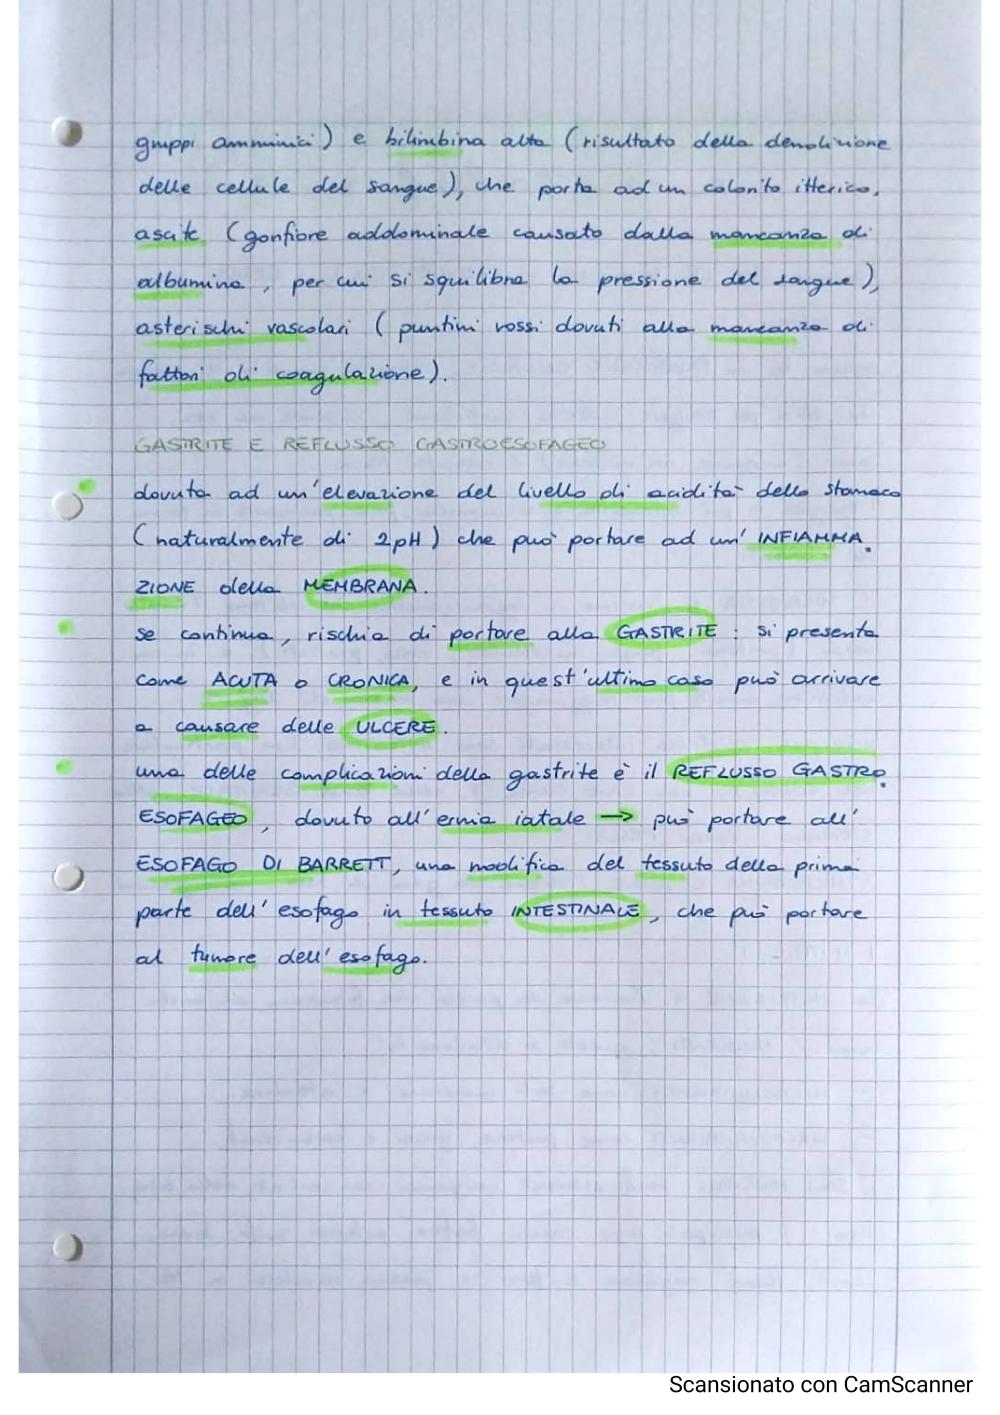 gruppi amminici) e bilirubina alta (risultato della demolizione
delle cellule del sangue), che porta ad un colorito itterico,
ascite (gonfiore addominale causato dalla mancanza di
albumina, per cui si squilibra la pressione del sangue),
asterischi vascolari (puntini rossi dovuti alla mancanza di
fattori di coagulazione).
GASTRITE E REFLUSSO GASTROESOFAGEO
dovuta ad un'elevazione del livello di acidità dello stomaco
(naturalmente di 2pH) che può portare ad un' INFIAMMA.
ZIONE della MEMBRANA.
se continua, rischia di portare alla GASTRITE : si presenta
come ACUTA o CRONICA, e in quest'ultimo caso può arrivare
a causare delle ULCERE.
una delle complicazioni della gastrite è il REFLUSSO GASTRO.
ESOFAGEO, dovuto all'ernia iatale → può portare all'
ESOFAGO DI BARRETT, una modifica del tessuto della prima
parte dell'esofago in tessuto INTESTINALE, che può portare
al tumore dell'esofago.
Scansionato con CamScanner